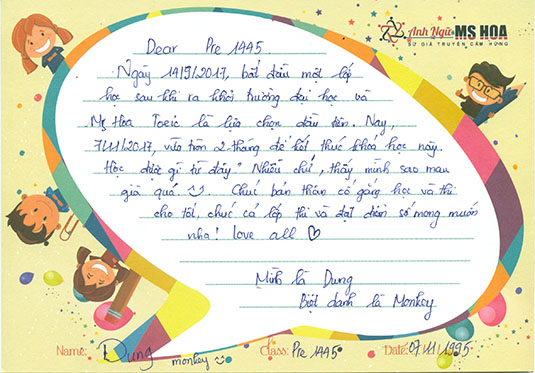 Anh Ngữ MS HOA
SỨ GIẢ TRUYỀN CẢM HỨNG
Dear Pre 1445.
Ngày 14/9/2017, bắt đầu một lớp
học sau khi ra khỏi trường đại học và
Ms Hoa Toeic là lựa chọn đầu tiên. Nay,
7/11/2017, vừa tròn 2 tháng để kết thúc khoá học này.
Học được gì từ đây? Nhiều chứ, thấy mình sao mau
già quá. Chúc bản thân cố gắng học và thi
cho tốt, chúc cả lớp thi và đạt điểm số mong muốn
nha! love all ♡
Mình là Dung
Biệt danh là Monkey
Name: Dung monkey Class: Pre 1445 Date: 07/11/1995